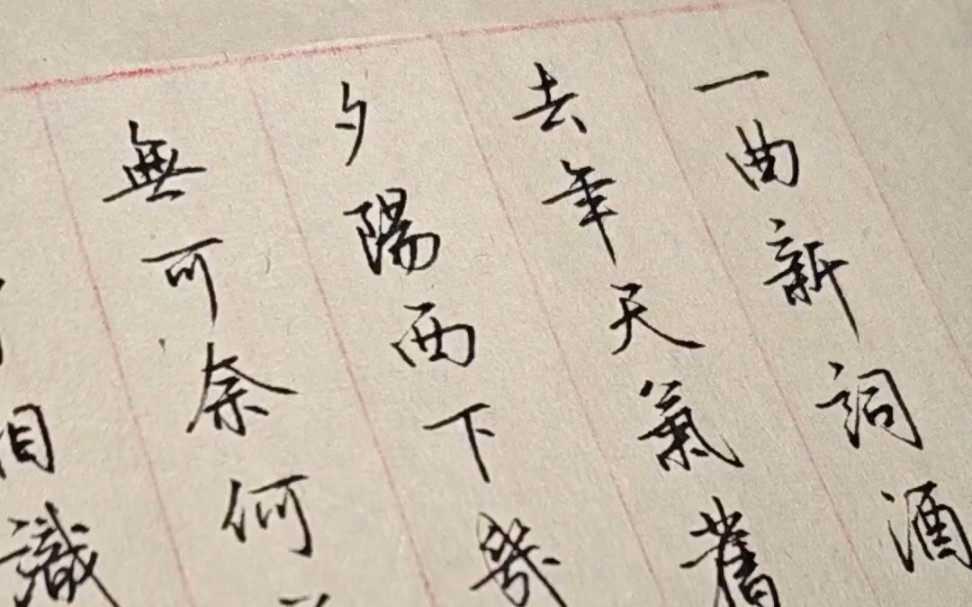 一曲新詞酒
去年天氣舊
夕陽西下幾
無可奈何
相識